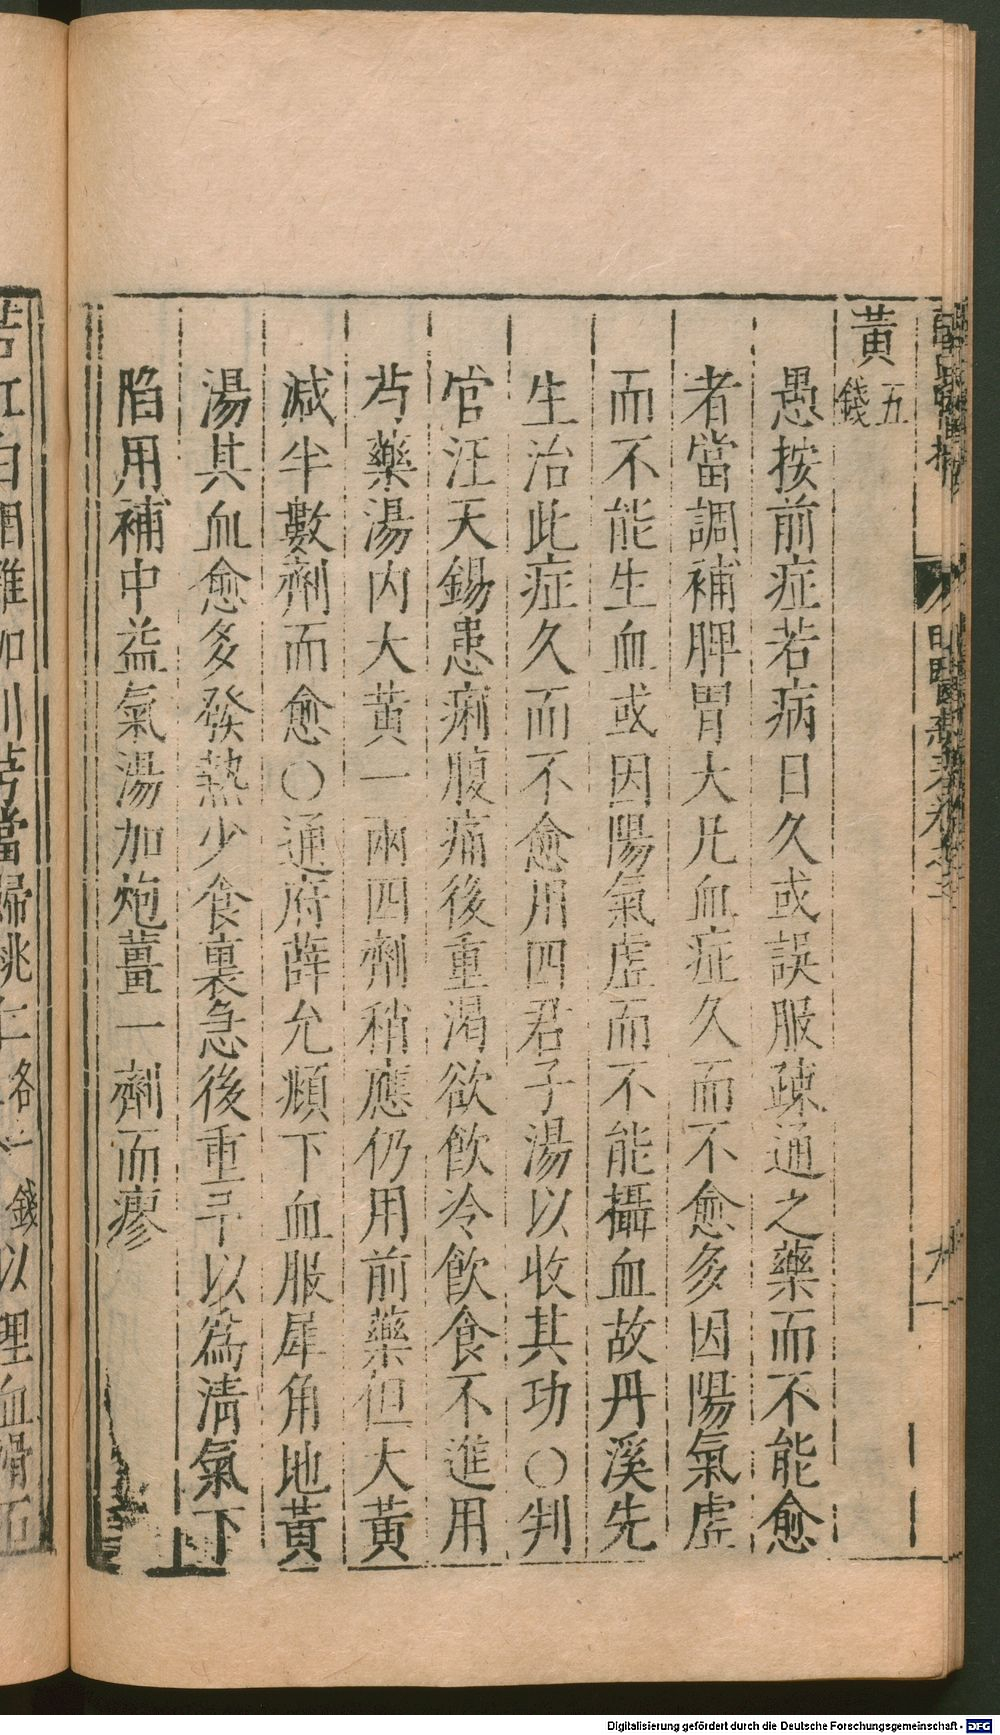 黃五錢
愚按前症若病日久或誤服疎通之藥而不能愈
者當調補脾胃大凡血症久而不愈多因陽氣虛
而不能生血或因陽氣虛而不能攝血故丹溪先
生治此症久而不愈用四君子湯以收其功○判
官汪天錫患痢腹痛後重渴欲飲冷飲食不進用
芍藥湯內大黃一兩四劑稍應仍用前藥但大黃
減半數劑而愈○通府薛允頫下血服犀角地黃
湯其血愈多發熱少食裏急後重予以為淸氣下
陷用補中益氣湯加炮薑一劑而瘳
Digitalisierung gefördert durch die Deutsche Forschungsgemeinschaft - DFG